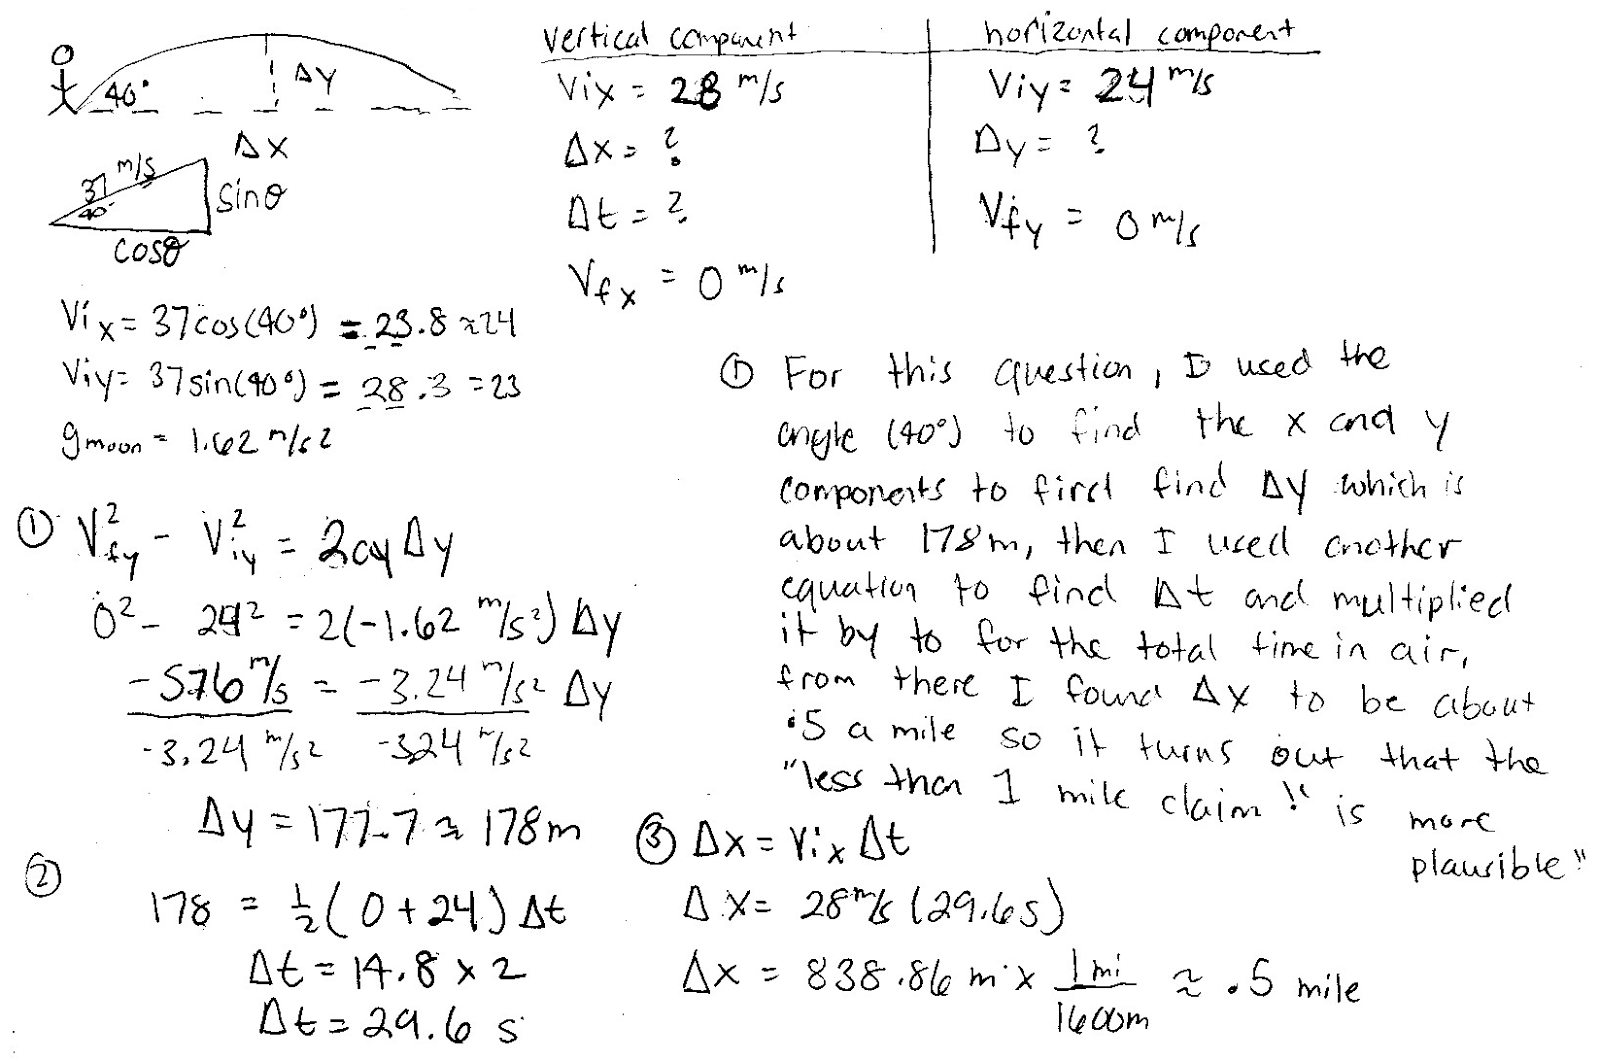 40°
Δy
Δx
37 m/s
40°
sinθ
cosθ
vertical component
Vix = 28 m/s
Δx = ?
Δt = ?
Vfx = 0 m/s
horizontal component
Viy = 24 m/s
Δy = ?
Vfy = 0 m/s
Vix = 37cos(40°) = 23.8 ≈ 24
Viy = 37sin(40°) = 28.3 = 23
gmoon = 1.62 m/s2
① Vfy² - Viy² = 2ay Δy
0² - 24² = 2(-1.62 m/s²) Δy
-576 m/s = -3.24 m/s² Δy
-3.24 m/s² -3.24 m/s²
Δy = 177.7 ≈ 178m
② 178 = ½(0+24)Δt
Δt = 14.8 x 2
Δt = 29.6 s
① For this question, I used the
angle (40°) to find the x and y
components to first find Δy which is
about 178m, then I used another
equation to find Δt and multiplied
it by to for the total time in air,
from there I found Δx to be about
.5 a mile so it turns out that the
"less than 1 mile claim!" is more
plausible"
③ Δx = Vix Δt
Δx = 28 m/s (29.6s)
Δx = 838.86 m x 1mi/1600m ≈ .5 mile